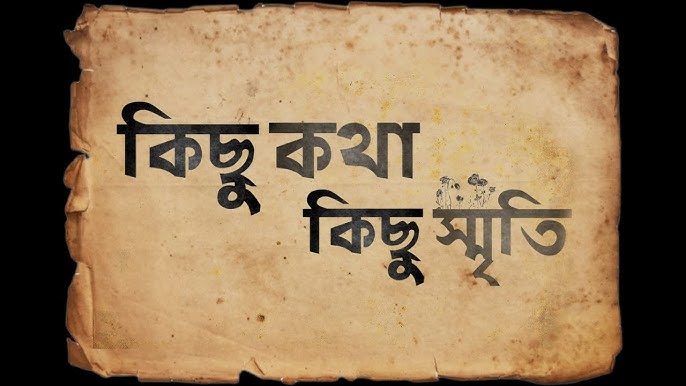 কিছু কথা
কিছু স্মৃতি